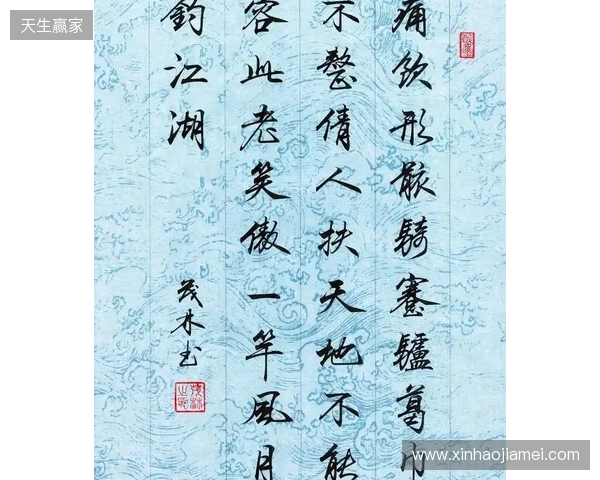 天生赢家
痛飲形骸騎蹇驢葛巾
不整倩人扶天地不能
容此老笑傲一竿風月
釣江湖
茂林书
www.xinhaojiamei.com